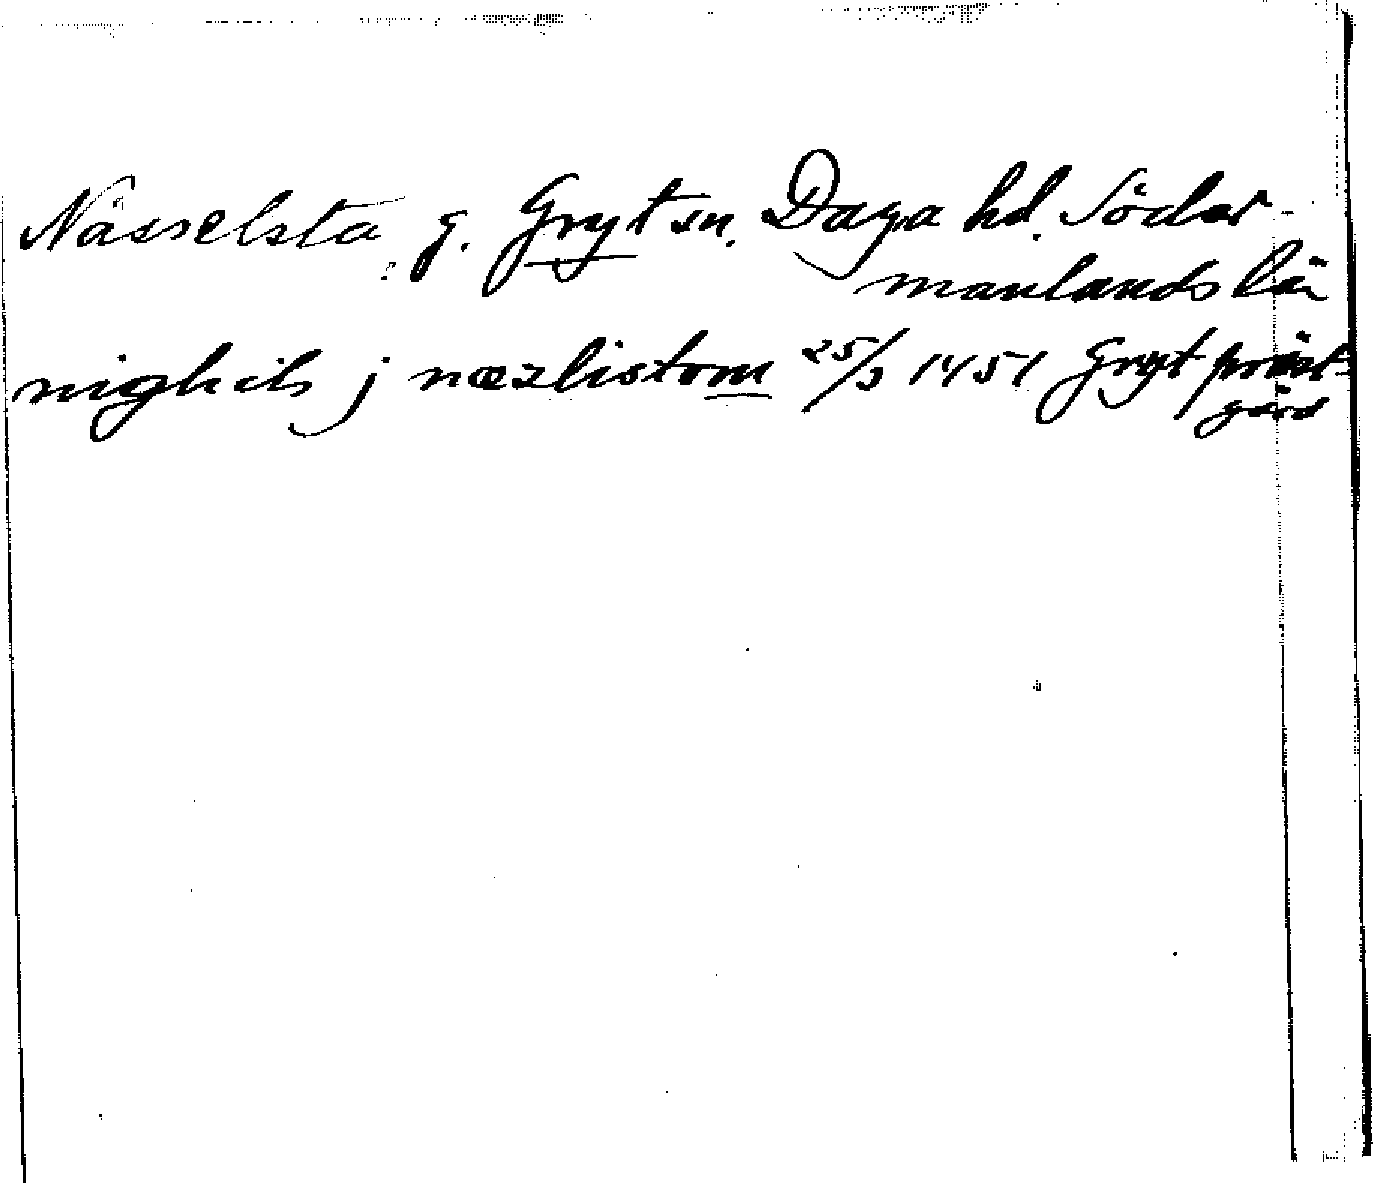 Nässelsta g. Gryt sn. Daga hd. Söder-
manlands län
nighils j næzlistom 25/3 1451 Gryt präst-
gård